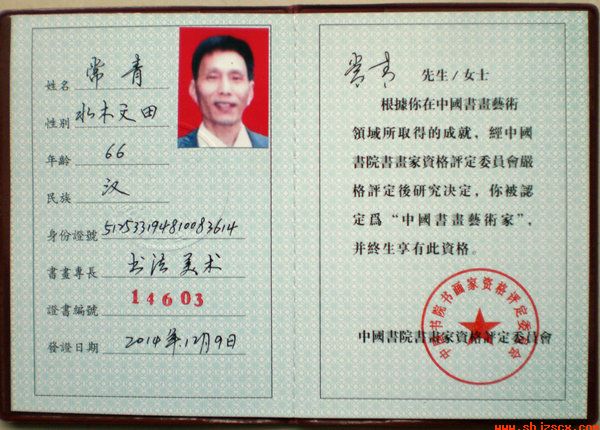 姓名 常青
性別 水木天田
年齡 66
民族 汉
身份證號 512533194810083614
書畫專長 书法美术
證書編號 14603
發證日期 2014年12月9日
常青 先生/女士
根據你在中國書畫藝術
領域所取得的成就，經中國
書院書畫家資格評定委員會嚴
格評定後研究決定，你被認
定爲“中國書畫藝術家”，
并終生享有此資格。
中國書院書畫家資格評定委員會
中国书院书画家资格评定委员会
www.sbjzscx.com